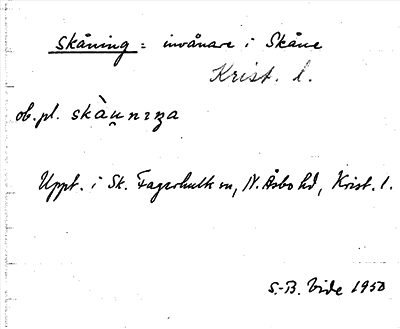 skåning = invånare i Skåne
Krist. l.
ob.pl. skàu̯nıŋa
Uppt. i Sk. Fagerhult sn, N. Åsbo hd, Krist. l.
S.-B. Vide 1950